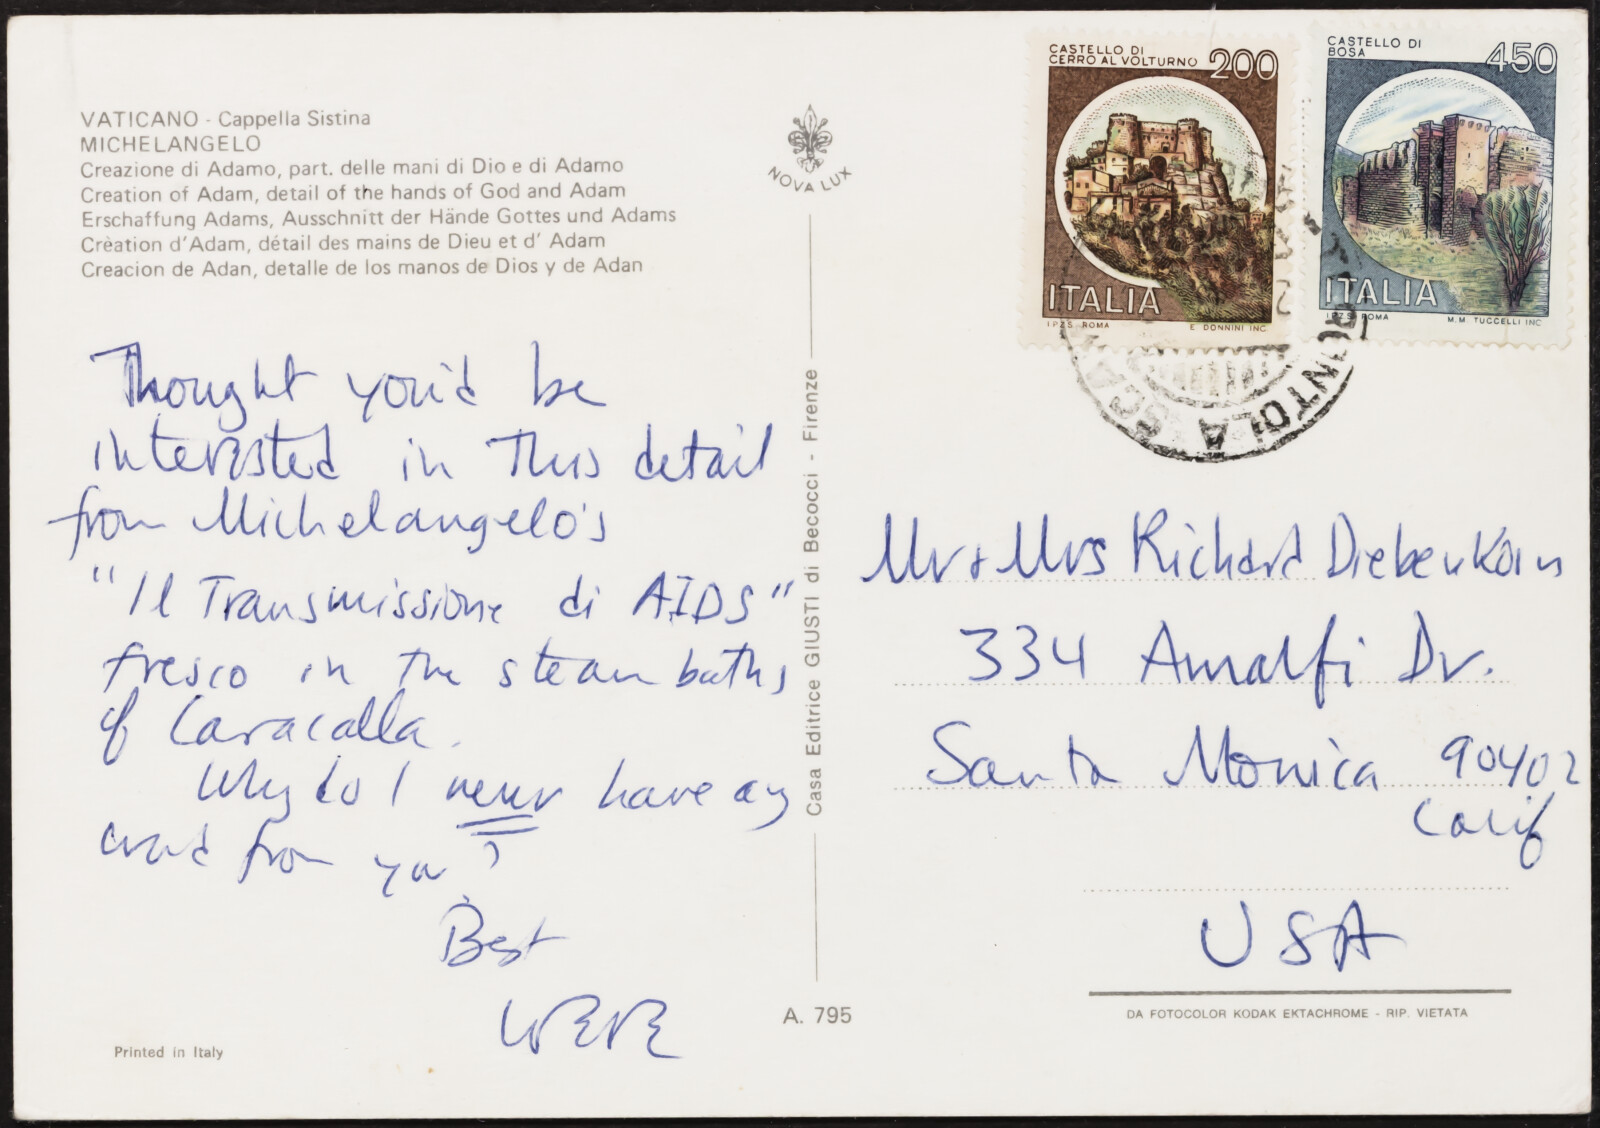 VATICANO - Cappella Sistina
MICHELANGELO
Creazione di Adamo, part. delle mani di Dio e di Adamo
Creation of Adam, detail of the hands of God and Adam
Erschaffung Adams, Ausschnitt der Hände Gottes und Adams
Crèation d'Adam, détail des mains de Dieu et d' Adam
Creacion de Adan, detalle de los manos de Dios y de Adan
Thought you'd be
interested in this detail
from Michelangelo's
"Il Transmissione di AIDS"
fresco in the steam baths
of Caracalla.
Why do I never have any
word from you?
Best
Printed in Italy
NOVA LUX
Casa Editrice GIUSTI di Becocci - Firenze
A. 795
CASTELLO DI
CERRO AL VOLTURNO 200
ITALIA
I.P.Z.S. ROMA E. DONNINI INC.
CASTELLO DI
BOSA 450
ITALIA
I.P.Z.S. ROMA M.M. TUCCELLI INC.
Mr + Mrs Richard Diebenkorn
334 Amalfi Dr.
Santa Monica 90402
Calif
USA
DA FOTOCOLOR KODAK EKTACHROME - RIP. VIETATA